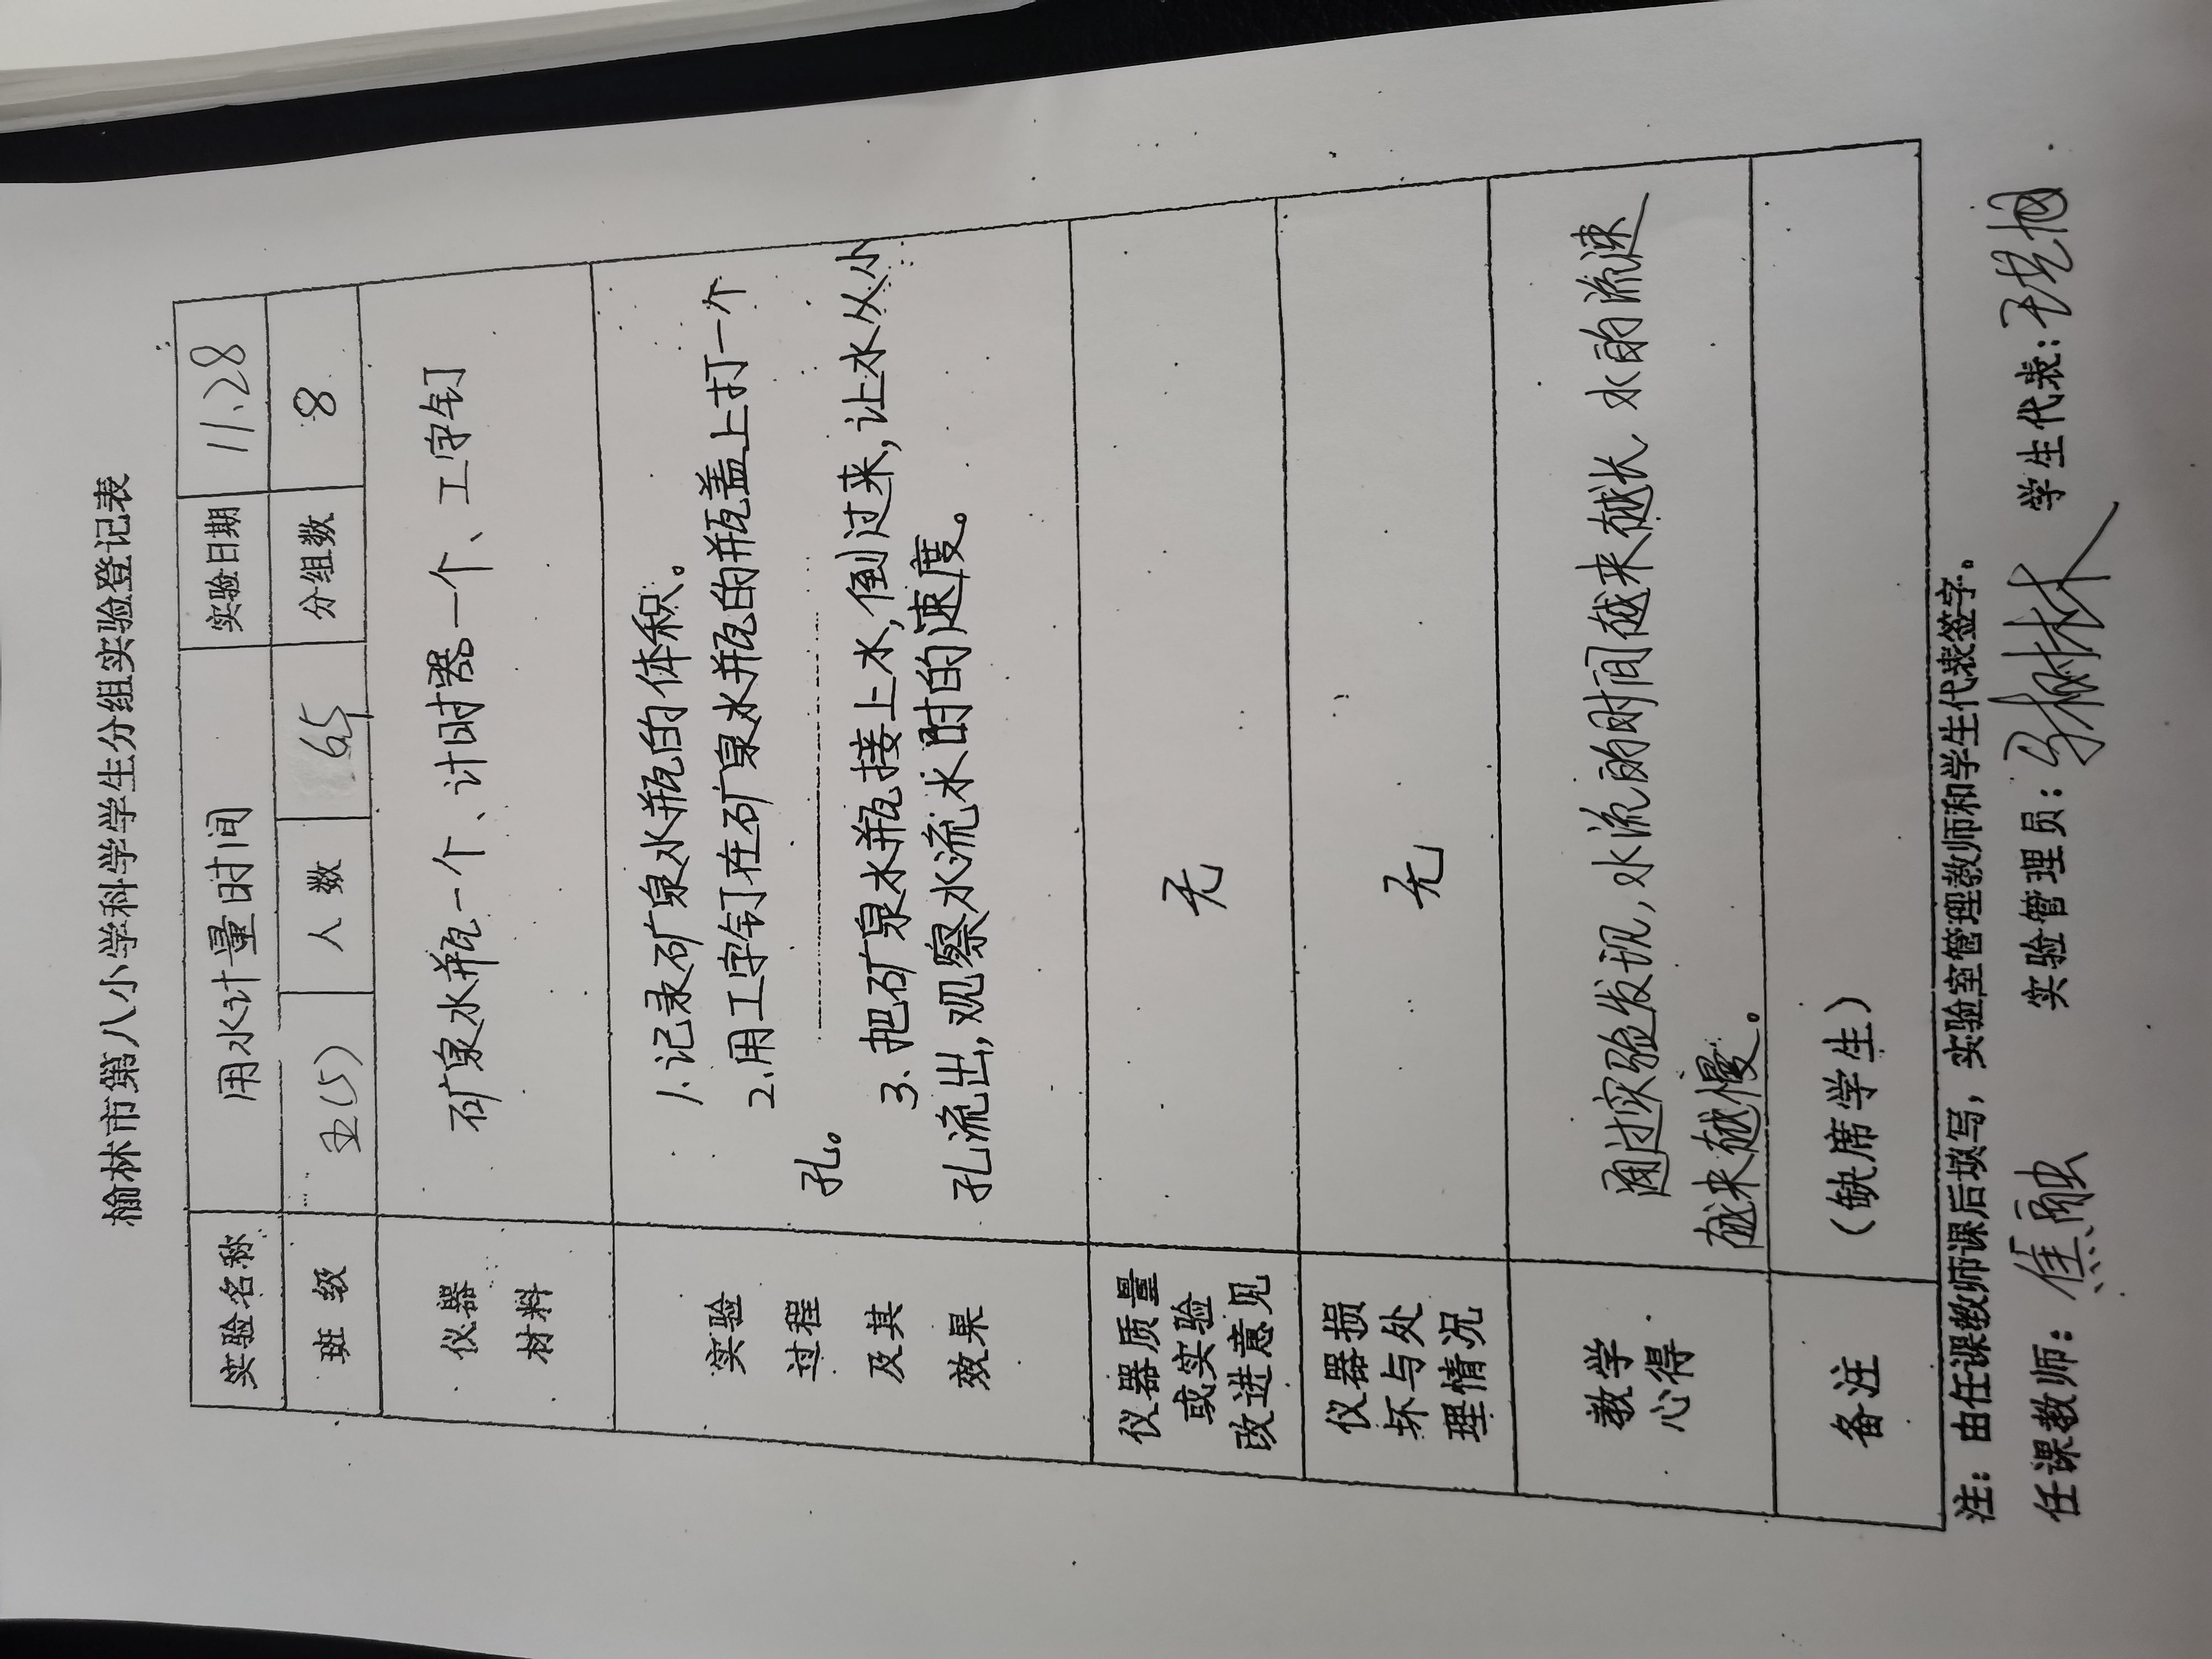 榆林市第八小学科学学生分组实验登记表
实验名称 用水计量时间 实验日期 11.28
班 级 五(5) 人 数 65 分组数 8
仪器
材料
矿泉水瓶一个、计时器一个、工字钉
实验
过程
及其
效果
1.记录矿泉水瓶的体积。
2.用工字钉在矿泉水瓶的瓶盖上打一个
孔。
3.把矿泉水瓶接上水,倒过来,让水从小
孔流出,观察水流水时的速度。
仪器质量
或实验
改进意见
无
仪器损
坏与处
理情况
无
教学
心得
通过实验发现,水流的时间越来越长,水的流速
越来越慢。
备注
(缺席学生)
注:由任课教师课后填写,实验室管理教师和学生代表签字。
任课教师:焦融 实验管理员:马树林 学生代表: